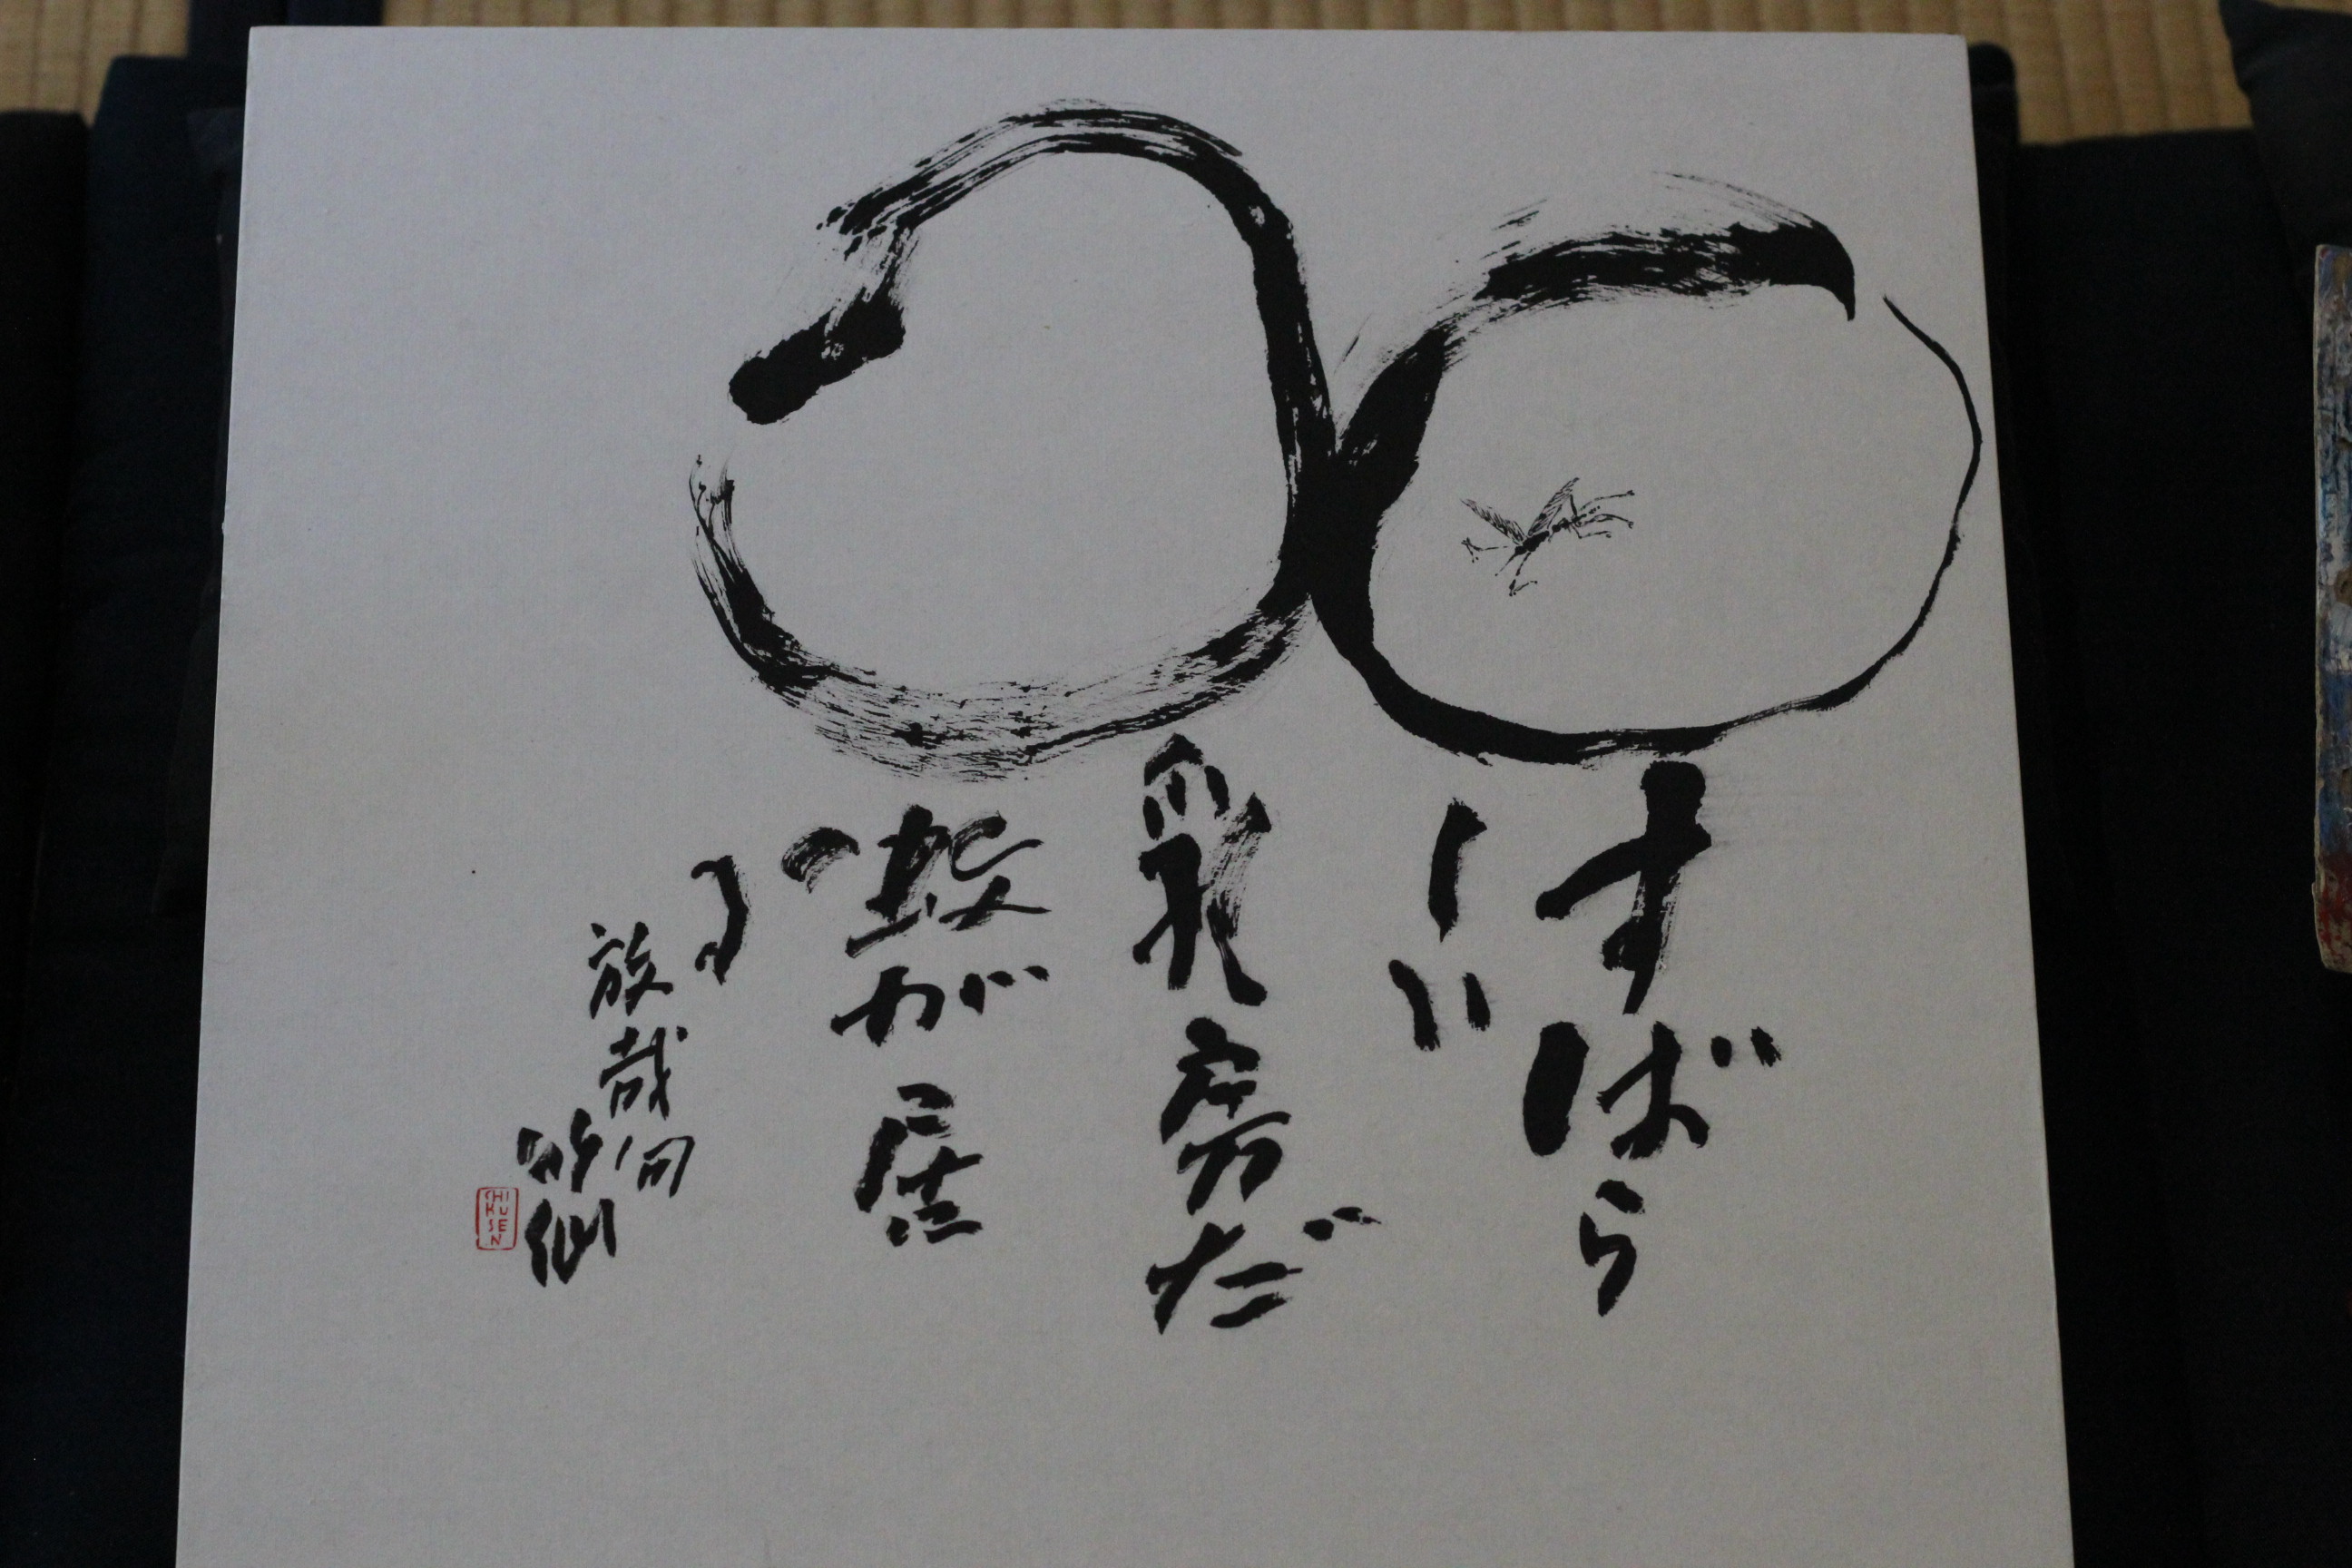 すばら
しい
乳房だ
蚊が居
る
放哉句
竹仙
CHI
KU
SEN